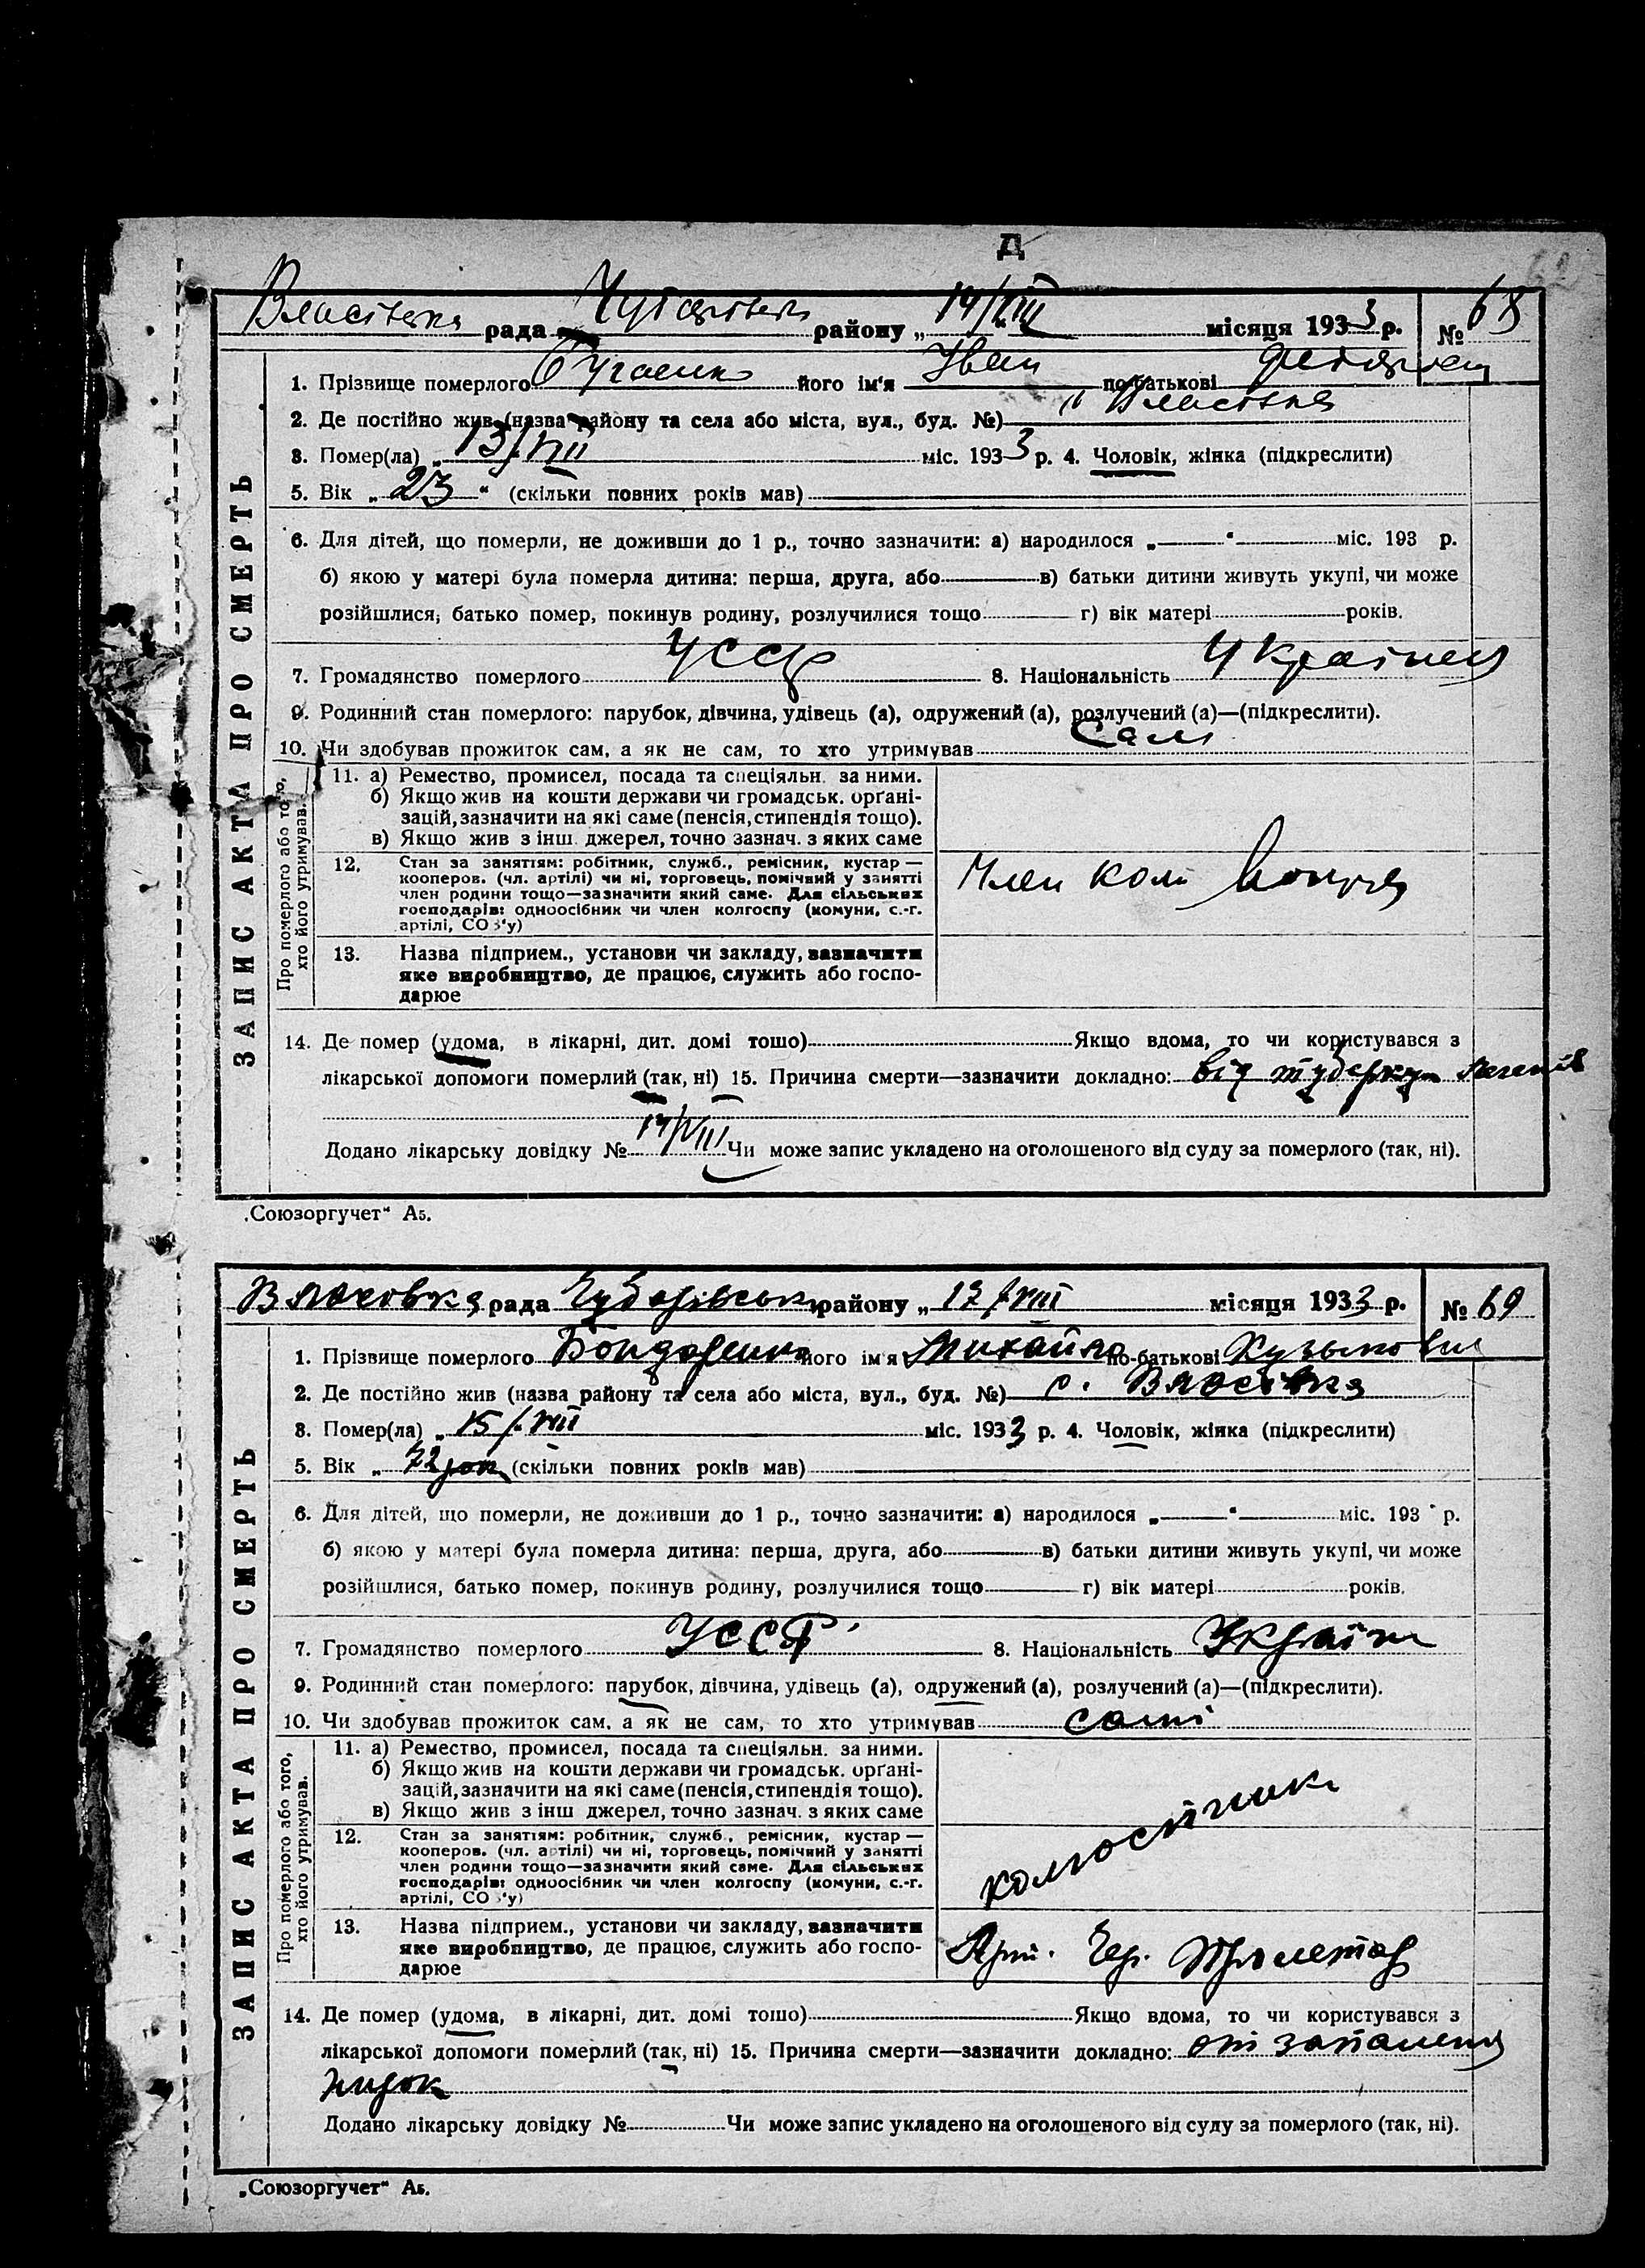 Д
Власівка рада района „14/VIII місяця 1933 р. № 68
1. Прізвище померлого його ім'я Іван по-батькові
2. Де постійно жив (назва району та села або міста, вул., буд. №) Власівка
3. Помер(ла) „13/VIII міс. 1933 р. 4. Чоловік, жінка (підкреслити)
5. Вік „23" (скільки повних років мав)
6. Для дітей, що померли, не доживши до 1 р., точно зазначити: а) народилося „ " міс. 193 р.
б) якою у матері була померла дитина: перша, друга, або в) батьки дитини живуть укупі, чи може
розійшлися, батько помер, покинув родину, розлучилися тощо г) вік матері років.
7. Громадянство померлого УССР 8. Національність Українец
9. Родинний стан померлого: парубок, дівчина, удівець (а), одружений (а), розлучений (а)—(підкреслити).
10. Чи здобував прожиток сам, а як не сам, то хто утримував Сам
11. а) Ремество, промисел, посада та спеціяльн. за ними.
б) Якщо жив на кошти держави чи громадськ. орґані-
зацій, зазначити на які саме (пенсія, стипендія тощо).
в) Якщо жив з інш. джерел, точно зазнач. з яких саме
12. Стан за заняттям: робітник, служб., ремісник, кустар —
кооперов. (чл. артілі) чи ні, торговець, помічний у занятті
член родини тощо—зазначити який саме. Для сільських
господарів: одноосібник чи член колгоспу (комуни, с.-г.
артілі, СОЗ'у)
Член
13. Назва підприєм., установи чи закладу, зазначити
яке виробництво, де працює, служить або госпо-
дарює
Про померлого або того,
хто його утримував.
14. Де помер (удома, в лікарні, дит. домі тощо) Якщо вдома, то чи користувався з
лікарської допомоги померлий (так, ні) 15. Причина смерти—зазначити докладно: від туберкул легенів
Додано лікарську довідку № 14/VIII Чи може запис укладено на оголошеного від суду за померлого (так, ні).
ЗАПИС АКТА ПРО СМЕРТЬ
„Союзоргучет" А5.
Власовка рада Чубарівськ району „17/VIII місяця 1933 р. № 69
1. Прізвище померлого Бондаренко його ім'я Михайло по-батькові Кузьмович
2. Де постійно жив (назва району та села або міста, вул., буд. №) с. Власівка
3. Помер(ла) „15/VIII міс. 1933 р. 4. Чоловік, жінка (підкреслити)
5. Вік „72 рок (скільки повних років мав)
6. Для дітей, що померли, не доживши до 1 р., точно зазначити: а) народилося „ " міс. 193 р.
б) якою у матері була померла дитина: перша, друга, або в) батьки дитини живуть укупі, чи може
розійшлися, батько помер, покинув родину, розлучилися тощо г) вік матері років.
7. Громадянство померлого УССР 8. Національність Україн
9. Родинний стан померлого: парубок, дівчина, удівець (а), одружений (а), розлучений (а)—(підкреслити).
10. Чи здобував прожиток сам, а як не сам, то хто утримував самі
11. а) Ремество, промисел, посада та спеціяльн. за ними.
б) Якщо жив на кошти держави чи громадськ. орґані-
зацій, зазначити на які саме (пенсія, стипендія тощо).
в) Якщо жив з інш джерел, точно зазнач. з яких саме
12. Стан за заняттям: робітник, служб., ремісник, кустар —
кооперов. (чл. артілі) чи ні, торговець, помічний у занятті
член родини тощо—зазначити який саме. Для сільських
господарів: одноосібник чи член колгоспу (комуни, с.-г.
артілі, СОЗ'у)
13. Назва підприєм., установи чи закладу, зазначити
яке виробництво, де працює, служить або госпо-
дарюе
Арт. Чер. Пролетар
Про померлого або того,
хто його утримував.
14. Де помер (удома, в лікарні, дит. домі тощо) Якщо вдома, то чи користувався з
лікарської допомоги померлий (так, ні) 15. Причина смерти—зазначити докладно: от запаленя
нирок
Додано лікарську довідку № Чи може запис укладено на оголошеного від суду за померлого (так, ні).
ЗАПИС АКТА ПРО СМЕРТЬ
„Союзоргучет" А5.